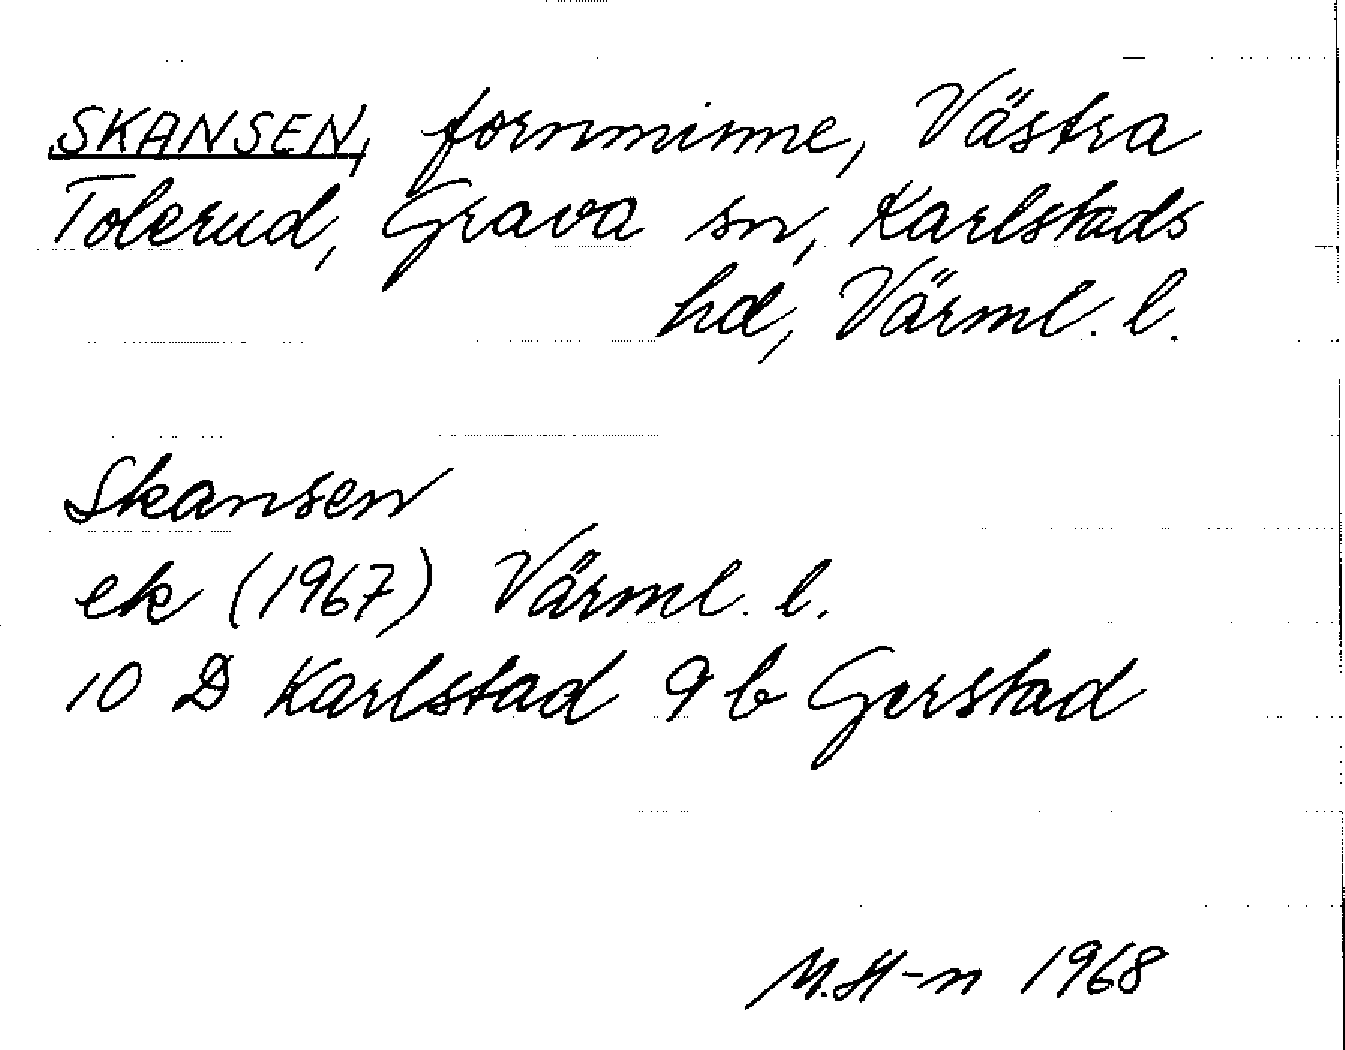 SKANSEN, fornminne, Västra
Tolerud, Grava sn, Karlstads
hd, Värml. l.
Skansen
ek (1967) Värml. l.
10 D Karlstad 9 b Gerstad
M.H-n 1968